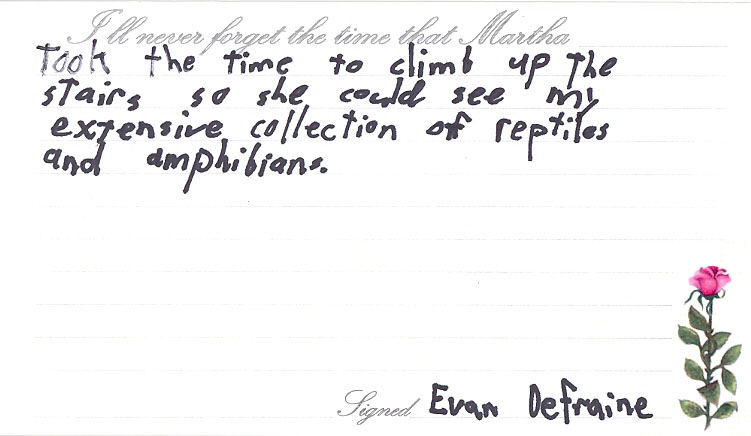 I'll never forget the time that Martha
Took the time to climb up the
stairs so she could see my
extensive collection of reptiles
and amphibians.
Signed Evan Defraine